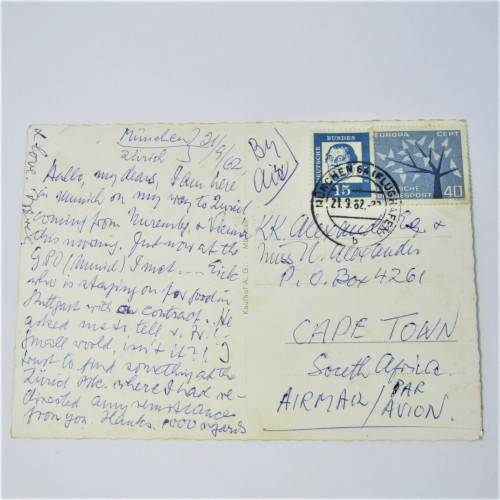 München } 21/9/62
Zürich
Hallo, my dears, I am here
in Munich on my way to Zurich
coming from Nuremb. & Vienna
this morning. Just now at the
GPO (Munich) I met .... Erich
who is staying on for good in
Stuttgart with a contract. He
asked me to tell
Small world, isn't it?!
trust to find something at the
Zürich where I had re-
directed any remittance
from you. Thanks. 1000 regards
& love
By
Air
Kaufhof A. G.
DEUTSCHE
BUNDES
15
EUROPA CEPT
BUNDESPOST 40
MÜNCHEN (FLUGHAFEN)
21.9.62
b
KK. Alexander &
Miss N. Alexander
P.O. Box 4261
CAPE TOWN
South Africa
AIRMAIL / PAR
AVION.